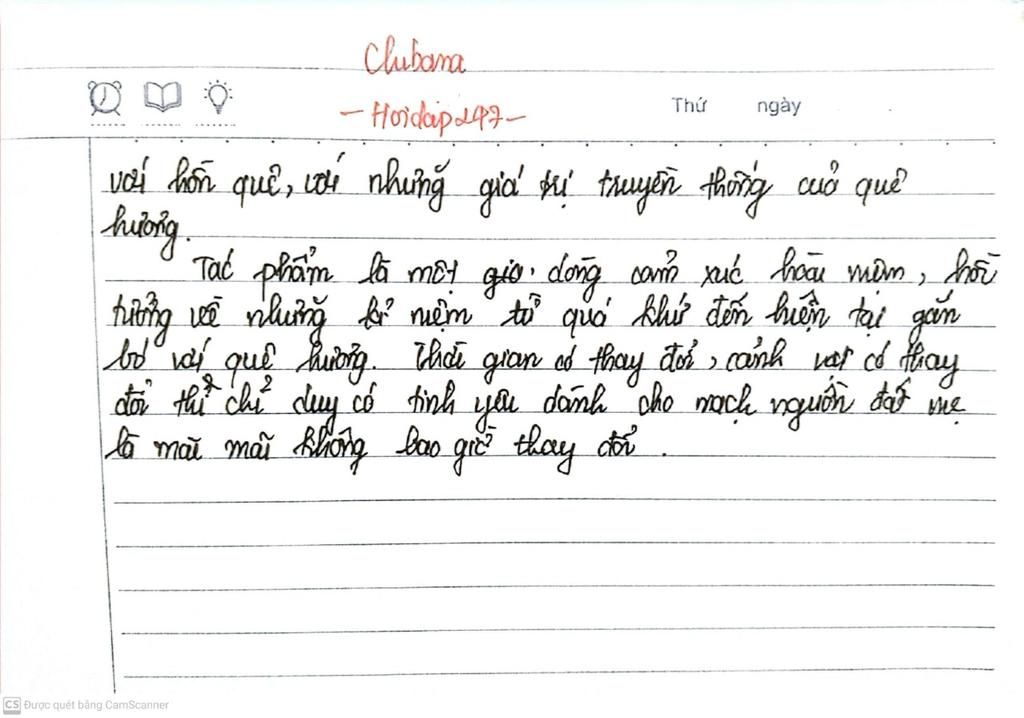 Clubana
Thứ ngày
- Hoidap247 -
với hồn quê, với những giá trị truyền thống của quê
hương.
Tác phẩm là một dòng cảm xúc hoài niệm, hồi
tưởng về những kỉ niệm từ quá khứ đến hiện tại gắn
bó với quê hương. Thời gian có thay đổi, cảnh vật có thay
đổi thì chỉ duy có tình yêu dành cho mạch nguồn đất mẹ
là mãi mãi không bao giờ thay đổi.
CS Được quét bằng CamScanner